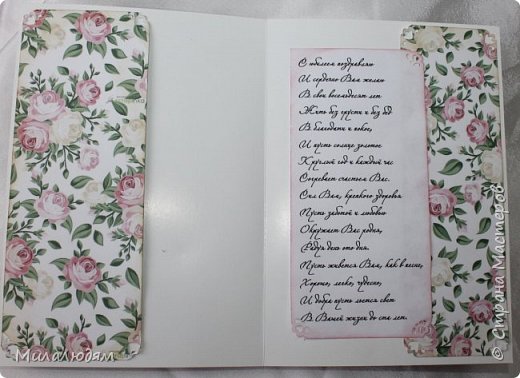 С юбилеем поздравляю
И сердечно Вам желаю
В свои восемьдесят лет
Жить без грусти и без бед
В благодати и покое,
И пусть солнце золотое
Круглый год и каждый час
Согревает счастьем Вас.
Сил Вам, крепкого здоровья
Пусть заботой и любовью
Окружает Вас родня,
Радуя день ото дня.
Пусть живется Вам, как в песне,
Хорошо, легко, чудесно,
И добра пусть льется свет
В Вашей жизни до ста лет.
Милалюдям
© Страна Мастеров